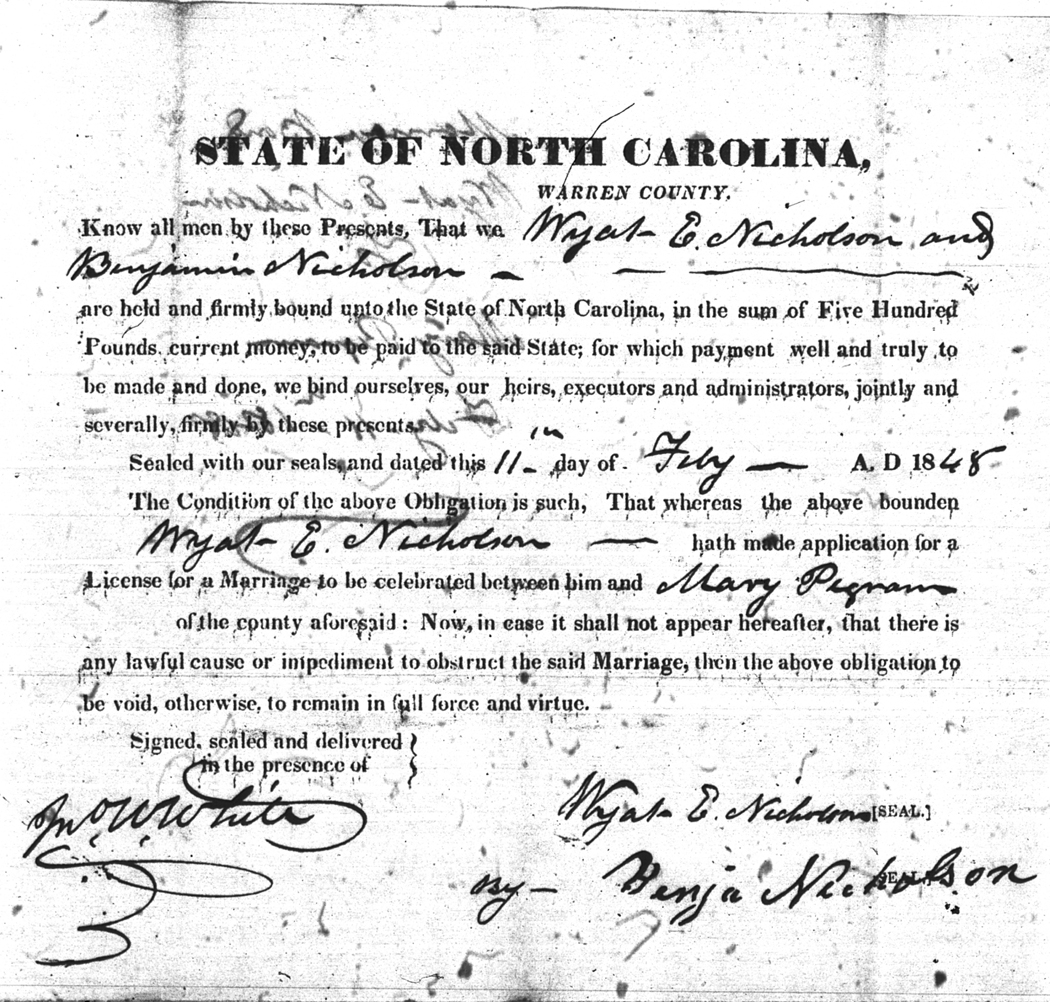 STATE OF NORTH CAROLINA,
WARREN COUNTY.
Know all men by these Presents, That we Wyat E. Nicholson and
Benjamin Nicholson
are held and firmly bound unto the State of North Carolina, in the sum of Five Hundred
Pounds, current money, to be paid to the said State; for which payment well and truly to
be made and done, we bind ourselves, our heirs, executors and administrators, jointly and
severally, firmly by these presents.
Sealed with our seals, and dated this 11th day of Feby A. D 1848
The Condition of the above Obligation is such, That whereas the above bounden
Wyat E. Nicholson hath made application for a
License for a Marriage to be celebrated between him and Mary Pegram
of the county aforesaid: Now, in case it shall not appear hereafter, that there is
any lawful cause or impediment to obstruct the said Marriage, then the above obligation to
be void, otherwise, to remain in full force and virtue.
Signed, sealed and delivered
in the presence of
Jno W White
Wyat E. Nicholson [SEAL.]
By Benja Nicholson [SEAL.]